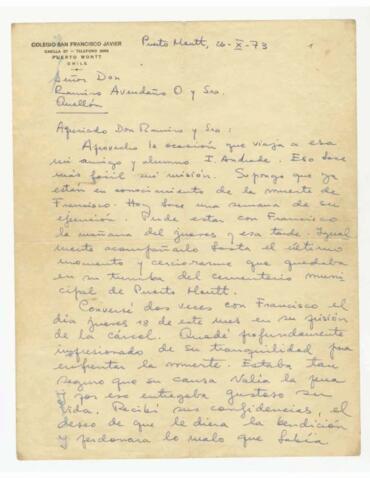 COLEGIO SAN FRANCISCO JAVIER
PUERTO MONTT
CHILE
Puerto Montt, 26-X-73
1
Señor Don
Ramiro Avendaño O y Sra.
Quellón
Apreciado Don Ramiro y Sra:
Aprovecho la ocasión que viaja a esa
mi amigo y alumno I. Andrade. Eso hace
más fácil mi misión. Supongo que ya
están en conocimiento de la muerte de
Francisco. Hoy hace una semana de su
ejecución. Pude estar con Francisco
la mañana del jueves y esa tarde. Igual
mente acompañarlo hasta el último
momento y cerciorarme que quedaba
en su tumba del cementerio muni
cipal de Puerto Montt.
Conversé dos veces con Francisco el
día jueves 18 de este mes en su prisión
de la cárcel. Quedé profundamente
impresionado de su tranquilidad para
enfrentar la muerte. Estaba tan
seguro que su causa valía la pena
y por eso entregaba gustoso su
vida. Recibí sus confidencias, el
deseo de que le diera la bendición
y perdonara lo malo que había